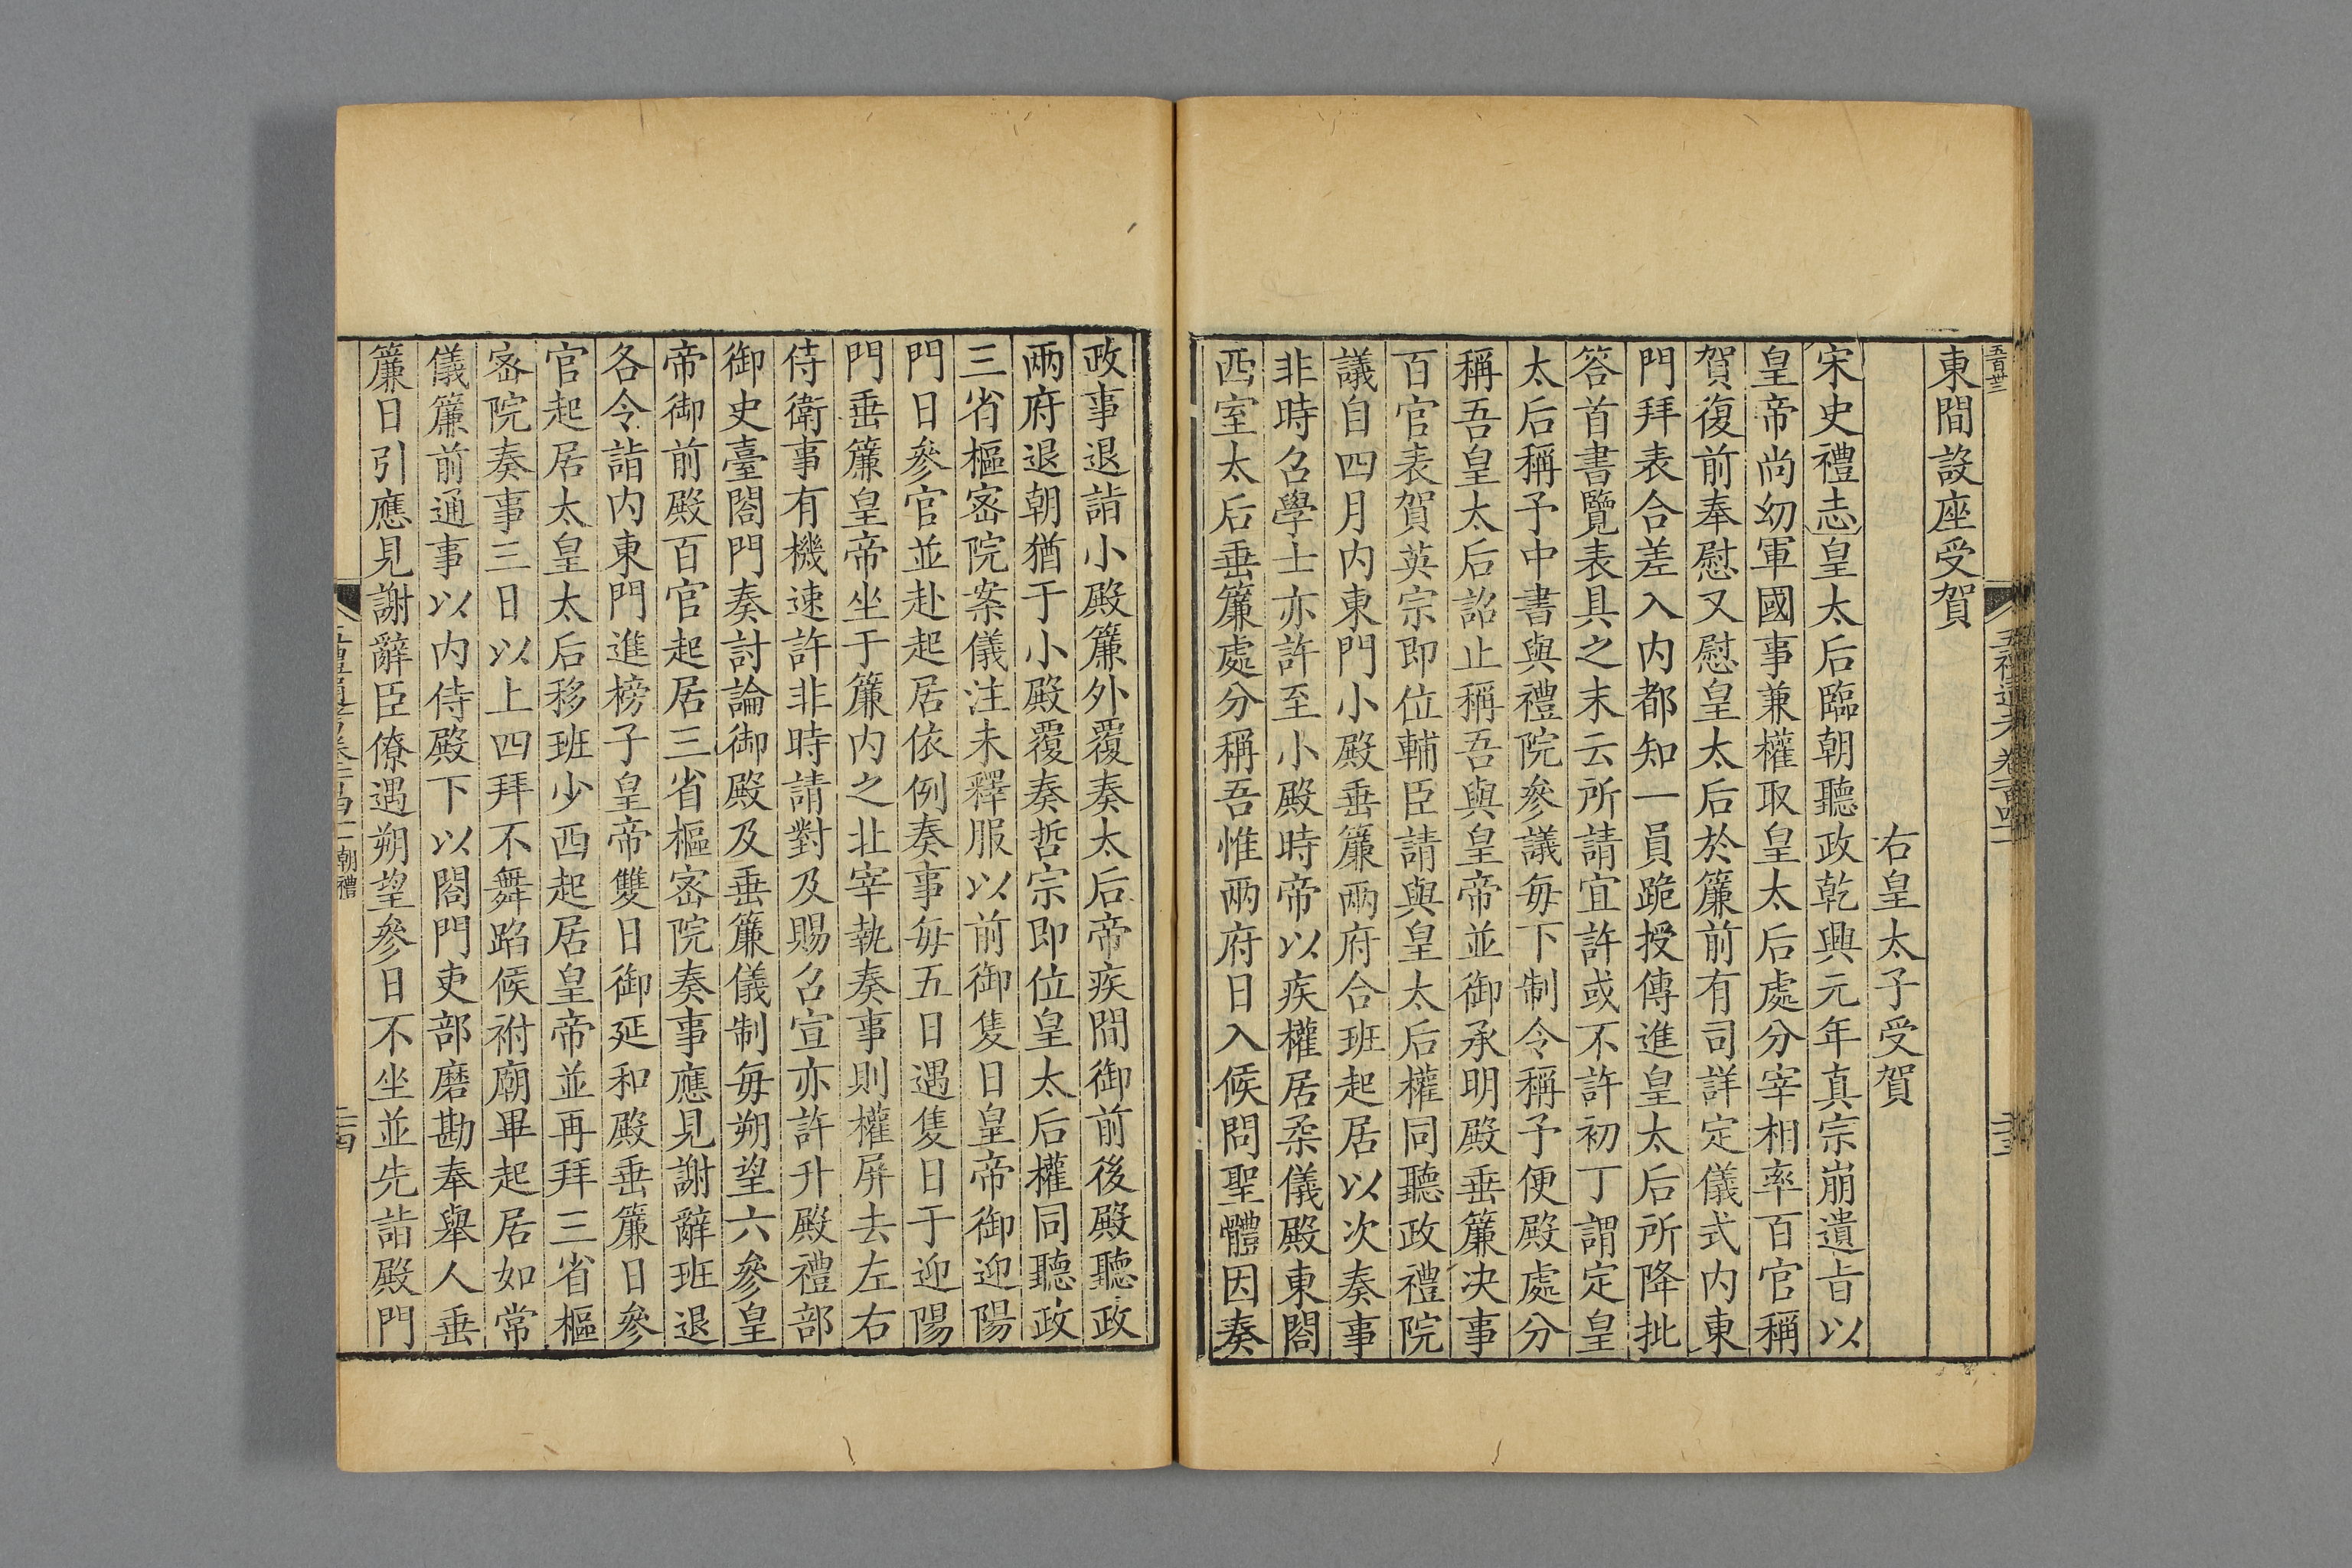 東間設座受賀
右皇太子受賀
宋史禮志皇太后臨朝聽政乾興元年真宗崩遺旨以
皇帝尚幼軍國事兼權取皇太后處分宰相率百官稱
賀復前奉慰又慰皇太后於簾前有司詳定儀式内東
門拜表合差入内都知一員跪授傳進皇太后所降批
答首書覽表具之末云所請宜許或不許初丁謂定皇
太后稱予中書與禮院參議每下制令稱予便殿處分
稱吾皇太后詔止稱吾與皇帝並御承明殿垂簾决事
百官表賀英宗即位輔臣請與皇太后權同聽政禮院
議自四月内東門小殿垂簾兩府合班起居以次奏事
非時召學士亦許至小殿時帝以疾權居柔儀殿東閤
西室太后垂簾處分稱吾惟兩府日入候問聖體因奏
政事退詣小殿簾外覆奏太后帝疾間御前後殿聽政
兩府退朝猶于小殿覆奏哲宗即位皇太后權同聽政
三省樞密院案儀注未釋服以前御隻日皇帝御迎陽
門日參官並赴起居依例奏事每五日遇隻日于迎陽
門垂簾皇帝坐于簾内之北宰執奏事則權屏去左右
侍衛事有機速許非時請對及賜召宣亦許升殿禮部
御史臺閤門奏討論御殿及垂簾儀制每朔望六參皇
帝御前殿百官起居三省樞密院奏事應見謝辭班退
各令詣内東門進榜子皇帝雙日御延和殿垂簾日參
官起居太皇太后移班少西起居皇帝並再拜三省樞
密院奏事三日以上四拜不舞蹈候祔廟畢起居如常
儀簾前通事以内侍殿下以閤門吏部磨勘奉舉人垂
簾日引應見謝辭臣僚遇朔望參日不坐並先詣殿門
朝禮